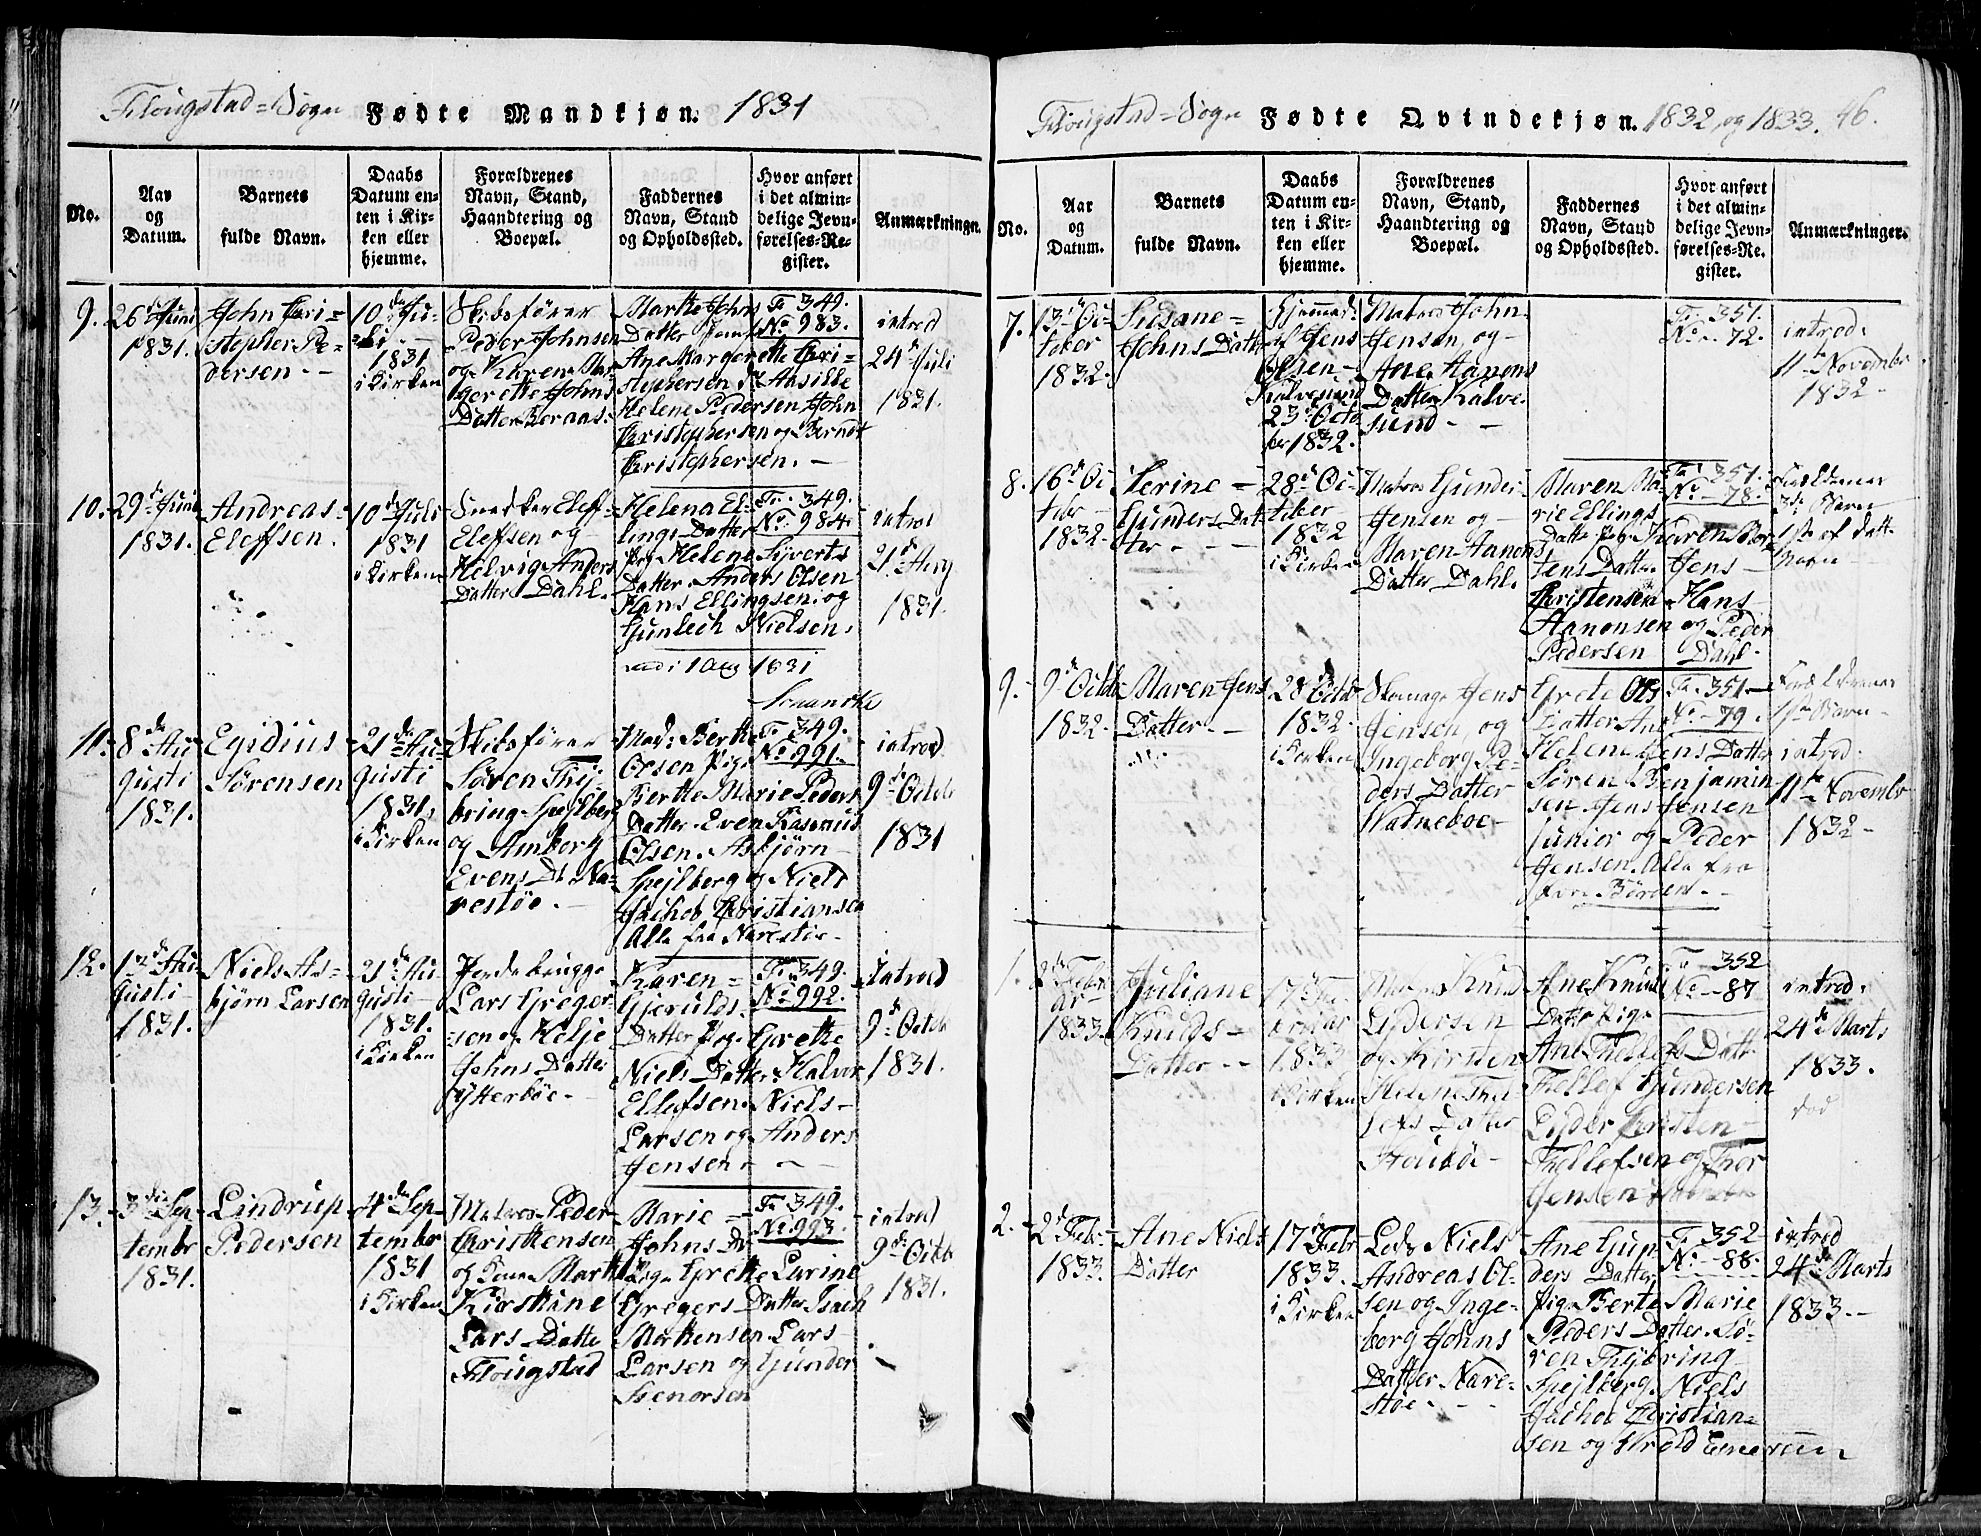 Flougstad-Sogn Fødte Mandkjøn. 1831
No.
Aar
og
Datum.
Barnets
fulde Navn.
Daabs
Datum en-
ten i Kir-
ken eller
hjemme.
Forældrenes
Navn, Stand,
Haandtering og
Boepæl.
Faddernes
Navn, Stand
og Opholdssted.
Hvor anført
i det almin-
delige Jevn-
førelses-Re-
gister.
Anmærkninger.
9.
26 Juni
1831.
John Chri-
stopher Pe-
dersen
10 Ju-
li
1831
i Kirken
Skibsfører
Peder Johnsen
og Karen Mar
grethe Johns
Datter Boraas.
Marthe Johns
Datter
Ane Margrethe Chri-
stophersen
Helene Pedersen John
Christophersen og Berndt
Christophersen.
Fo: 349.
No. 983.
introd
24 Juli
1831.
10.
29 Juni
1831.
Andreas
Eleffsen.
10 Juli
1831
i Kirken
Snedker Eleff
Eleffsen og
Helvig Anders
Datter Dahl.
Helena El-
lings Datter
Pige Helene Siverts
Datter. Anders Olsen
Hans Ellingsen og
Gunlech Nielsen.
1 Aug 1831
Fo: 349.
No. 984.
introd
21 Aug
1831.
11.
8 Au
gusti
1831.
Egidius
Sørensen
21 Au-
gusti
1831.
i Kirken
Skibsfører
Søren Thy-
bring Spejlberg
og Amborg
Evens Dr. Na-
restøe.
Mad: Berthe
Olsen Pige
Berthe Marie Peders
Datter. Even Rasmus
Olsen. Asbjørn
Spejlberg og Niels
Jachob Christiansen
Alle fra Narestøe
Fo: 349.
No. 991.
introd.
9 Octob
1831
12.
Au-
gusti
1831.
Niels As-
bjørn Larsen
21 Au-
gusti
1831.
i Kirken
Lars Greger
sen og Helje
Johns Datter
Ytterbøe
Karen
Gjerulds
Datter Pige Grethe
Niels Datter. Halvor
Ellefsen. Niels
Larsen og Anders
Jensen.
Fo: 349.
No. 992.
Introd
9 Octob
1831.
13.
3 Sep
tembr
1831.
Lindruep
Pedersen
4 Sep-
tembr
1831
i Kirken
Matros Peder
Christensen
og Kone
Kirstine
Lars Datte
Flougstad
Marie
Johns Dr
Pige Grethe Larine
Gregers Datter. Isach
Mortensen. Lars
Larsen og Gunder
Fo: 349.
No. 993.
introd
9 Octob
1831.
Flougstad-Sogn Fødte Qvindekjøn. 1832 og 1833. 46.
No.
Aar
og
Datum.
Barnets
fulde Navn.
Daabs
Datum en-
ten i Kir-
ken eller
hjemme.
Forældrenes
Navn, Stand,
Haandtering og
Boepæl.
Faddernes
Navn, Stand
og Opholdssted.
Hvor anført
i det almin-
delige Jevn-
førelses-Re-
gister.
Anmærkninger.
7.
13 Oc-
tober
1832.
Susane
Johns Datter
Hjemmed:
af Jens
Olsen
Kalvesund
23 Octo
ber 1832.
Matros John
Jensen, og
Ane Aanons
Datter Kalve
sund
Fo: 351.
No. 72.
introd:
11 Novembr
1832
8.
16 Oc
tobr
1832.
Terine
Gunders Dat
ter
28 Oc
tober
1832
i Kirken
Matros Gunder
Jensen og
Maren Aanons
Datter Dahl.
Maren Ma
rie Ellings
Datte Pige Karen Mor
tens Datter Jens
Christensen Hans
Aanonsen og Peder
Pedersen Dahl.
Fo: 351.
No. 78.
9.
9 Octob
1832.
Maren Jens
Datter
28 Octob
1832
i Kirken
Skomager Jens
Jensen, og
Ingeborg Pe-
ders Datter
Watneboe
Grete Ols
Datter Ane
Helene Jens Datter
Søren Benjamin
sen Jens Jensen
junior og Peder
Jensen. Alle fra
Børøen
Fo: 351.
No. 79.
introd:
11 Novembr
1832
1.
2 Febr
1833.
Juliane
Knuds
Datter
17
1833
i Kirken
Matros Knud
Lydersen
og Kirsten
Helene Thel
lefs Datter
Ane Knud
Datte Pige
Ane Thellefs Datt
Thellef Gundersen
Lyder Christen
Thellefsen og Thor
Jensen
Fo: 352
No. 87
introd:
24 Marts
1833.
dod
2.
2 Febr:
1833.
Ane Niels
Datter
17 Febr
1833.
i Kirken
Lods Niels
Andreas Ol-
sen og Inge-
borg Johns
Datter Nare-
støe
Ane Gun
ders Datter
Pige Berte Marie
Peders Datter. Sø-
ren Thybring
Spejlberg. Niels
Jachob Christian-
sen og
Fo: 352
No. 88.
introd
24 Marts
1833.